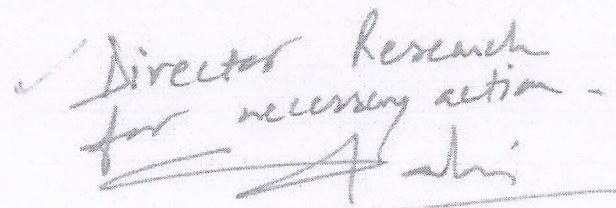 Director Research
for necessary action -